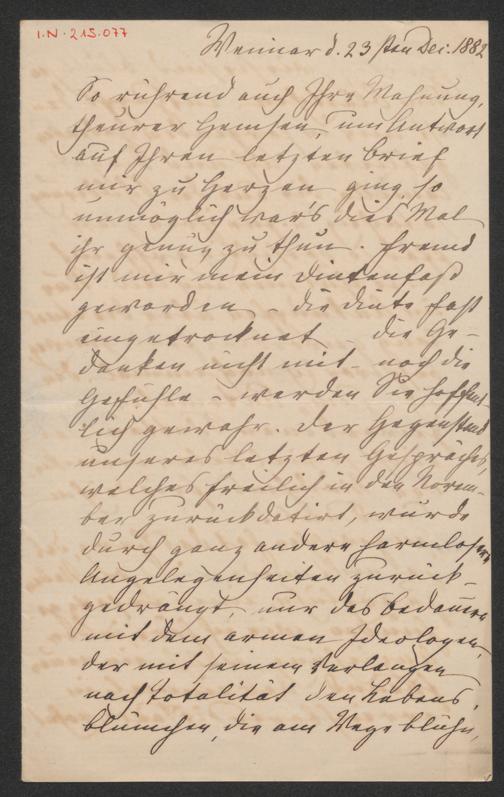 I.N. 215.077
Weimar d. 23sten Dec. 1882
So rührend auch Ihre Mahnung,
theurer Hemsen, um Antwort
auf Ihren letzten Brief
mir zu Herzen ging, so
unmöglich war's dies Mal
ihr genug zu thun. Fremd
ist mir mein Dintenfaß
geworden – die Dinte fast
eingetrocknet – die Ge-
danken nicht mit – noch die
Gefühle – werden Sie hoffent-
lich gewahr. Der Gegenstand
unseres letzten Gespräches,
welches freilich in den Novem-
ber zurückdatirt, wurde
durch ganz andere harmlose
Angelegenheiten zurück-
gedrängt, nur das Bedauern
mit dem armen Ideologen,
der mit seinem Verlangen
nach Totalität den Lebens-
blümchen, die am Wege blühn,